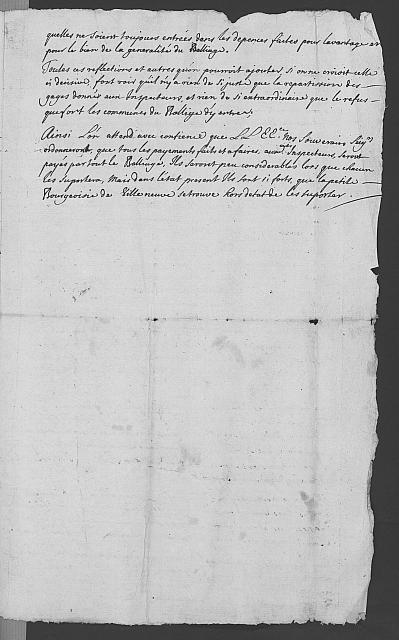 quelles ne soient toujours entrées dans les depences faites pour lavantage et
pour le bien de la generalité du Balliage.
Toutes ces reflections et autres qu'on pourroit ajouter, si on ne croioit celle
ci decisive, font voir qu'il n'y a rien de si juste que la repartission des
gages donnés aux Inspecteurs, et rien de si extraordinaire que le refus
que font les communes du Balliage d'y entrer;
Ainsi L'on attend avec confience que LL EE.ces Nos Souverains Seigrs
ordonneront, que tous les payements faits et a faires, aux Inspecteurs, seront
payés par tout le Balliage, Ils seront peu considerables lors que chacun
les suportera, Mais dans l'état present Ils sont si forts, que la petite
Bourgeoisie de Villeneuve se trouve hors detat de les suporter.